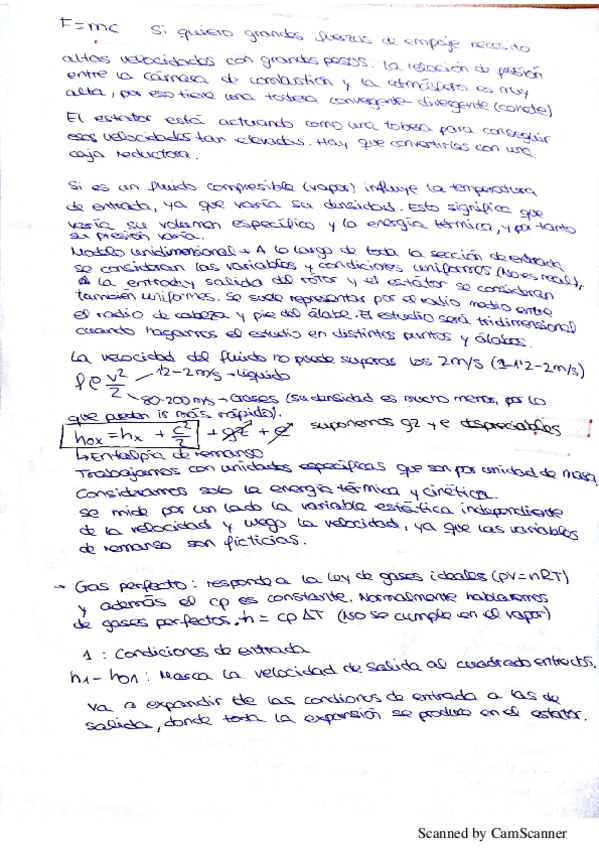 F=mc Si quiero grandes fuerzas de empuje necesito
altas velocidades con grandes pesos. La relación de presión
entre la cámara de combustión y la atmósfera es muy
alta, por eso tiene una tobera convergente-divergente (cohete)
El estator está actuando como una tobera para conseguir
esas velocidades tan elevadas. Hay que convertirlas con una
caja reductora.
Si es un fluido compresible (vapor) influye la temperatura
de entrada, ya que varía su densidad. Esto significa que
varía su volumen específico y la energía térmica, y por tanto
su presión varía.
Modelo unidimensional → A lo largo de toda la sección de entrada
se consideran las variables y condiciones uniformes (No es real).
A la entrada y salida del rotor y el estátor se consideran
también uniformes. Se suele representar por el radio medio entre
el radio de cabeza y pie del álabe. El estudio será tridimensional
cuando hagamos el estudio en distintos puntos y álabes.
La velocidad del fluido no puede superar los 2m/s (1-1'2-2m/s)
v²/2 1'2-2m/s → líquido
80-200 m/s → Gases (su densidad es mucho menor, por lo
que pueden ir más rápido).
hox = hx + c²/2 + gz + e suponemos gz y e despreciables
↳ Entalpía de remanso
Trabajamos con unidades específicas que son por unidad de masa
Consideramos solo la energía térmica y cinética.
Se mide por un lado la variable estática independiente
de la velocidad y luego la velocidad, ya que las variables
de remanso son ficticias.
→ Gas perfecto: responde a la ley de gases ideales (pV=nRT)
y además el cp es constante. Normalmente hablaremos
de gases perfectos. h = cp ΔT (No se cumple en el vapor)
1: Condiciones de entrada
h1-h01: Marca la velocidad de salida al cuadrado entre
Va a expandir de las condiones de entrada a las de
salida, donde toda la expansión se produce en el estator.
Scanned by CamScanner